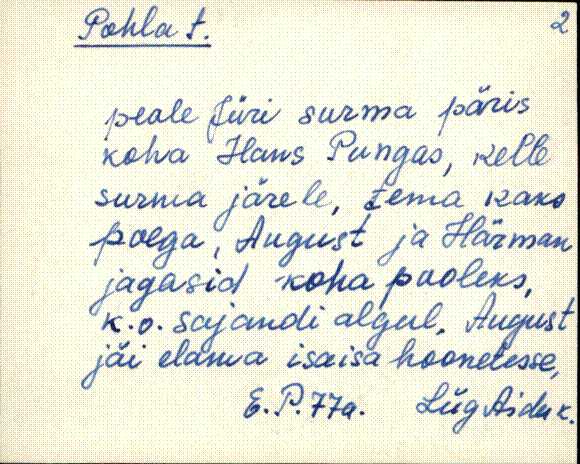 Pohla t. 2
peale Jüri surma päris
koha Hans Pungas, kelle
surma järele, tema kaks
poega, August ja Härman
jagasid koha pooleks,
k.o. sajandi algul. August
jäi elama isaisa hoonetesse,
E.P. 77a. Lüg Aidu k.